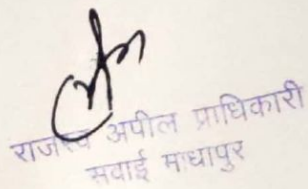 राजस्व अपील प्राधिकारी
सवाई माधापुर